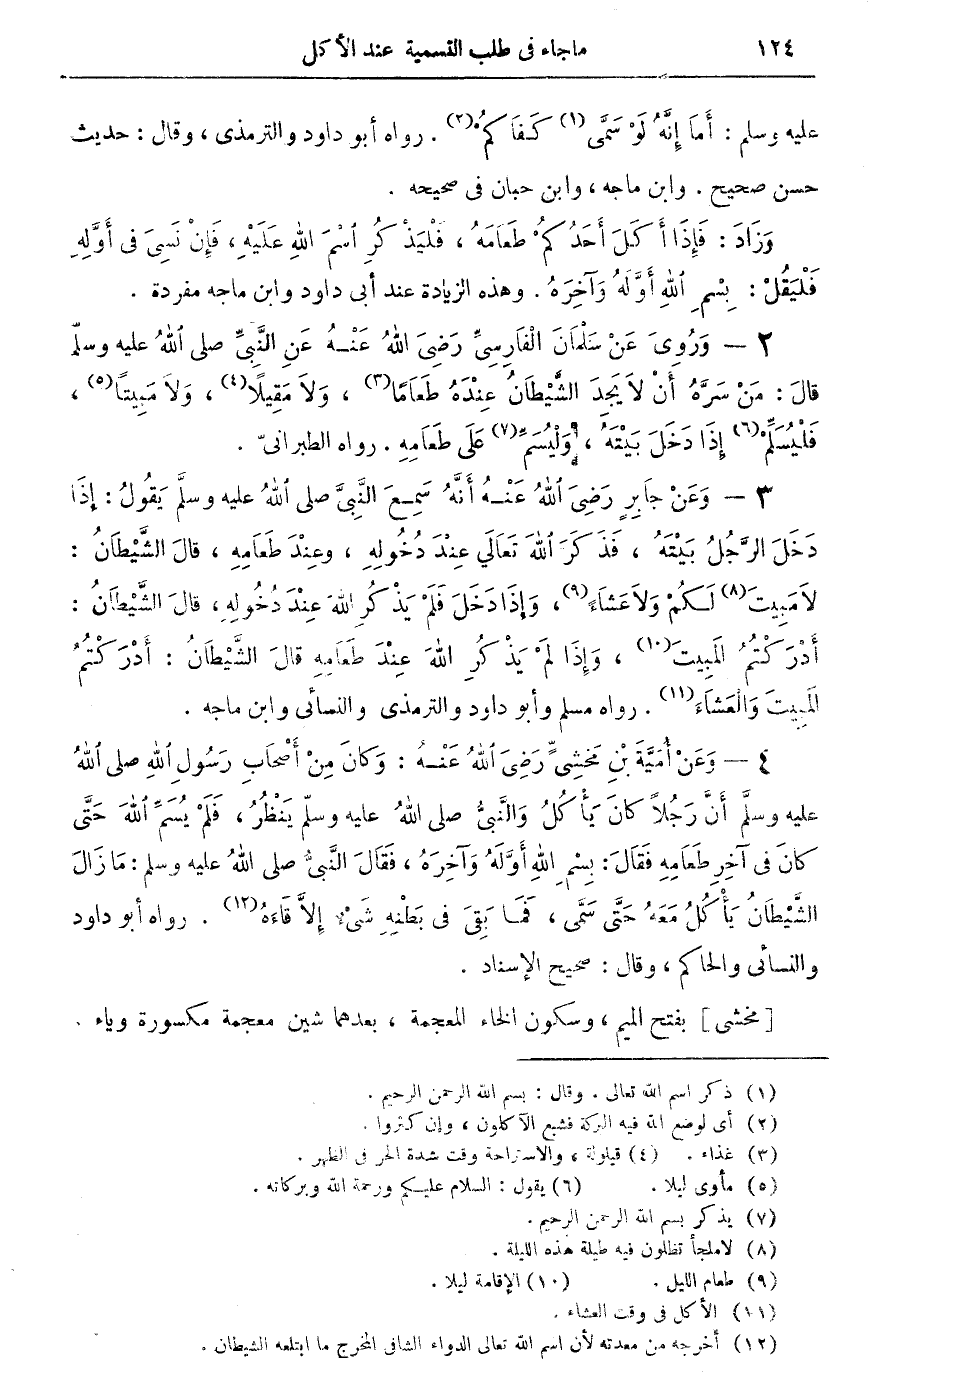 ١٢٤ ماجاء فى طلب التسمية عند الأكل
عليه وسلم : أَمَا إِنَّهُ لَوْ سَمَّى(١) كَفَاكُمْ(٢) . رواه أبو داود والترمذى ، وقال : حديث
حسن صحيح . وابن ماجه ، وابن حبان فى صحيحه .
وَزَادَ : فَإِذَا أَكَلَ أَحَدُكُمْ طَعَامَهُ ، فَلْيَذْكُرِ اسْمَ اللهِ عَلَيْهِ ، فَإِنْ نَسِىَ فى أَوَّلِهِ
فَلْيَقُلْ : بِسْمِ اللهِ أَوَّلَهُ وَآخِرَهُ . وهذه الزيادة عند أبى داود وابن ماجه مفردة .
٢ — وَرُوِىَ عَنْ سَلْمَانَ الْفَارِسِىِّ رَضِىَ اللهُ عَنْهُ عَنِ النَّبِىِّ صلى اللهُ عليه وسلَّم
قالَ : مَنْ سَرَّهُ أَنْ لاَ يَجِدَ الشَّيْطَانُ عِنْدَهُ طَعَامًا(٣) ، وَلاَ مَقِيلًا(٤) ، وَلاَ مَبِيتًا(٥) ،
فَلْيُسَلِّمْ(٦) إِذَا دَخَلَ بَيْتَهُ ، وَلْيُسَمِّ(٧) عَلَى طَعَامِهِ . رواه الطبرانىّ .
٣ — وَعَنْ جاَبِرٍ رَضِىَ اللهُ عَنْهُ أَنَّهُ سَمِعَ النَّبِىَّ صلى اللهُ عليه وسلَّم يَقُولُ : إِذَا
دَخَلَ الرَّجُلُ بَيْتَهُ ، فَذَكَرَ اللهَ تَعَالَى عِنْدَ دُخُولِهِ ، وعِنْدَ طَعَامِهِ ، قالَ الشَّيْطَانُ :
لاَ مَبِيتَ(٨) لَكُمْ وَلاَ عَشَاءَ(٩) ، وَإِذَا دَخَلَ فَلَمْ يَذْكُرِ اللهَ عِنْدَ دُخُولِهِ ، قالَ الشَّيْطَانُ :
أَدْرَكْتُمُ الْمَبِيتَ(١٠) ، وَإِذَا لَمْ يَذْكُرِ اللهَ عِنْدَ طَعَامِهِ قالَ الشَّيْطَانُ : أَدْرَكْتُمُ
الْمَبِيتَ وَالْعَشَاءَ(١١) . رواه مسلم وأبو داود والترمذى والنسائى وابن ماجه .
٤ — وَعَنْ أُمَيَّةَ بْنِ مَخْشِىٍّ رَضِىَ اللهُ عَنْهُ : وَكَانَ مِنْ أَصْحَابِ رَسُولِ اللهِ صلى اللهُ
عليه وسلَّم أَنَّ رَجُلاً كانَ يَأْكُلُ وَالنَّبِىُّ صلى اللهُ عليه وسلَّم يَنْظُرُ ، فَلَمْ يُسَمِّ اللهَ حَتَّى
كانَ فى آخِرِ طَعَامِهِ فَقَالَ : بِسْمِ اللهِ أَوَّلَهُ وَآخِرَهُ ، فَقَالَ النَّبِىُّ صلى اللهُ عليه وسلم : مَا زَالَ
الشَّيْطَانُ يَأْكُلُ مَعَهُ حَتَّى سَمَّى ، فَمَا بَقِىَ فى بَطْنِهِ شَىْءٌ إِلاَّ قَاءَهُ(١٢) . رواه أبو داود
والنسائى والحاكم ، وقال : صحيح الإسناد .
[مخشى] بفتح الميم ، وسكون الخاء المعجمة ، بعدهما شين معجمة مكسورة وياء .
(١) ذكر اسم الله تعالى . وقال : بسم الله الرحمن الرحيم .
(٢) أى لوضع الله فيه البركة فشبع الآكلون ، وإن كثروا .
(٣) غذاء . (٤) قيلولة ، والاستراحة وقت شدة الحر فى الظهر .
(٥) مأوى ليلا . (٦) يقول : السلام عليكم ورحمة الله وبركاته .
(٧) يذكر بسم الله الرحمن الرحيم .
(٨) لاملجأ تظلون فيه طيلة هذه الليلة .
(٩) طعام الليل . (١٠) الإقامة ليلا .
(١١) الأكل فى وقت العشاء .
(١٢) أخرجه من معدته لأن اسم الله تعالى الدواء الشافى المخرج ما ابتلعه الشيطان .